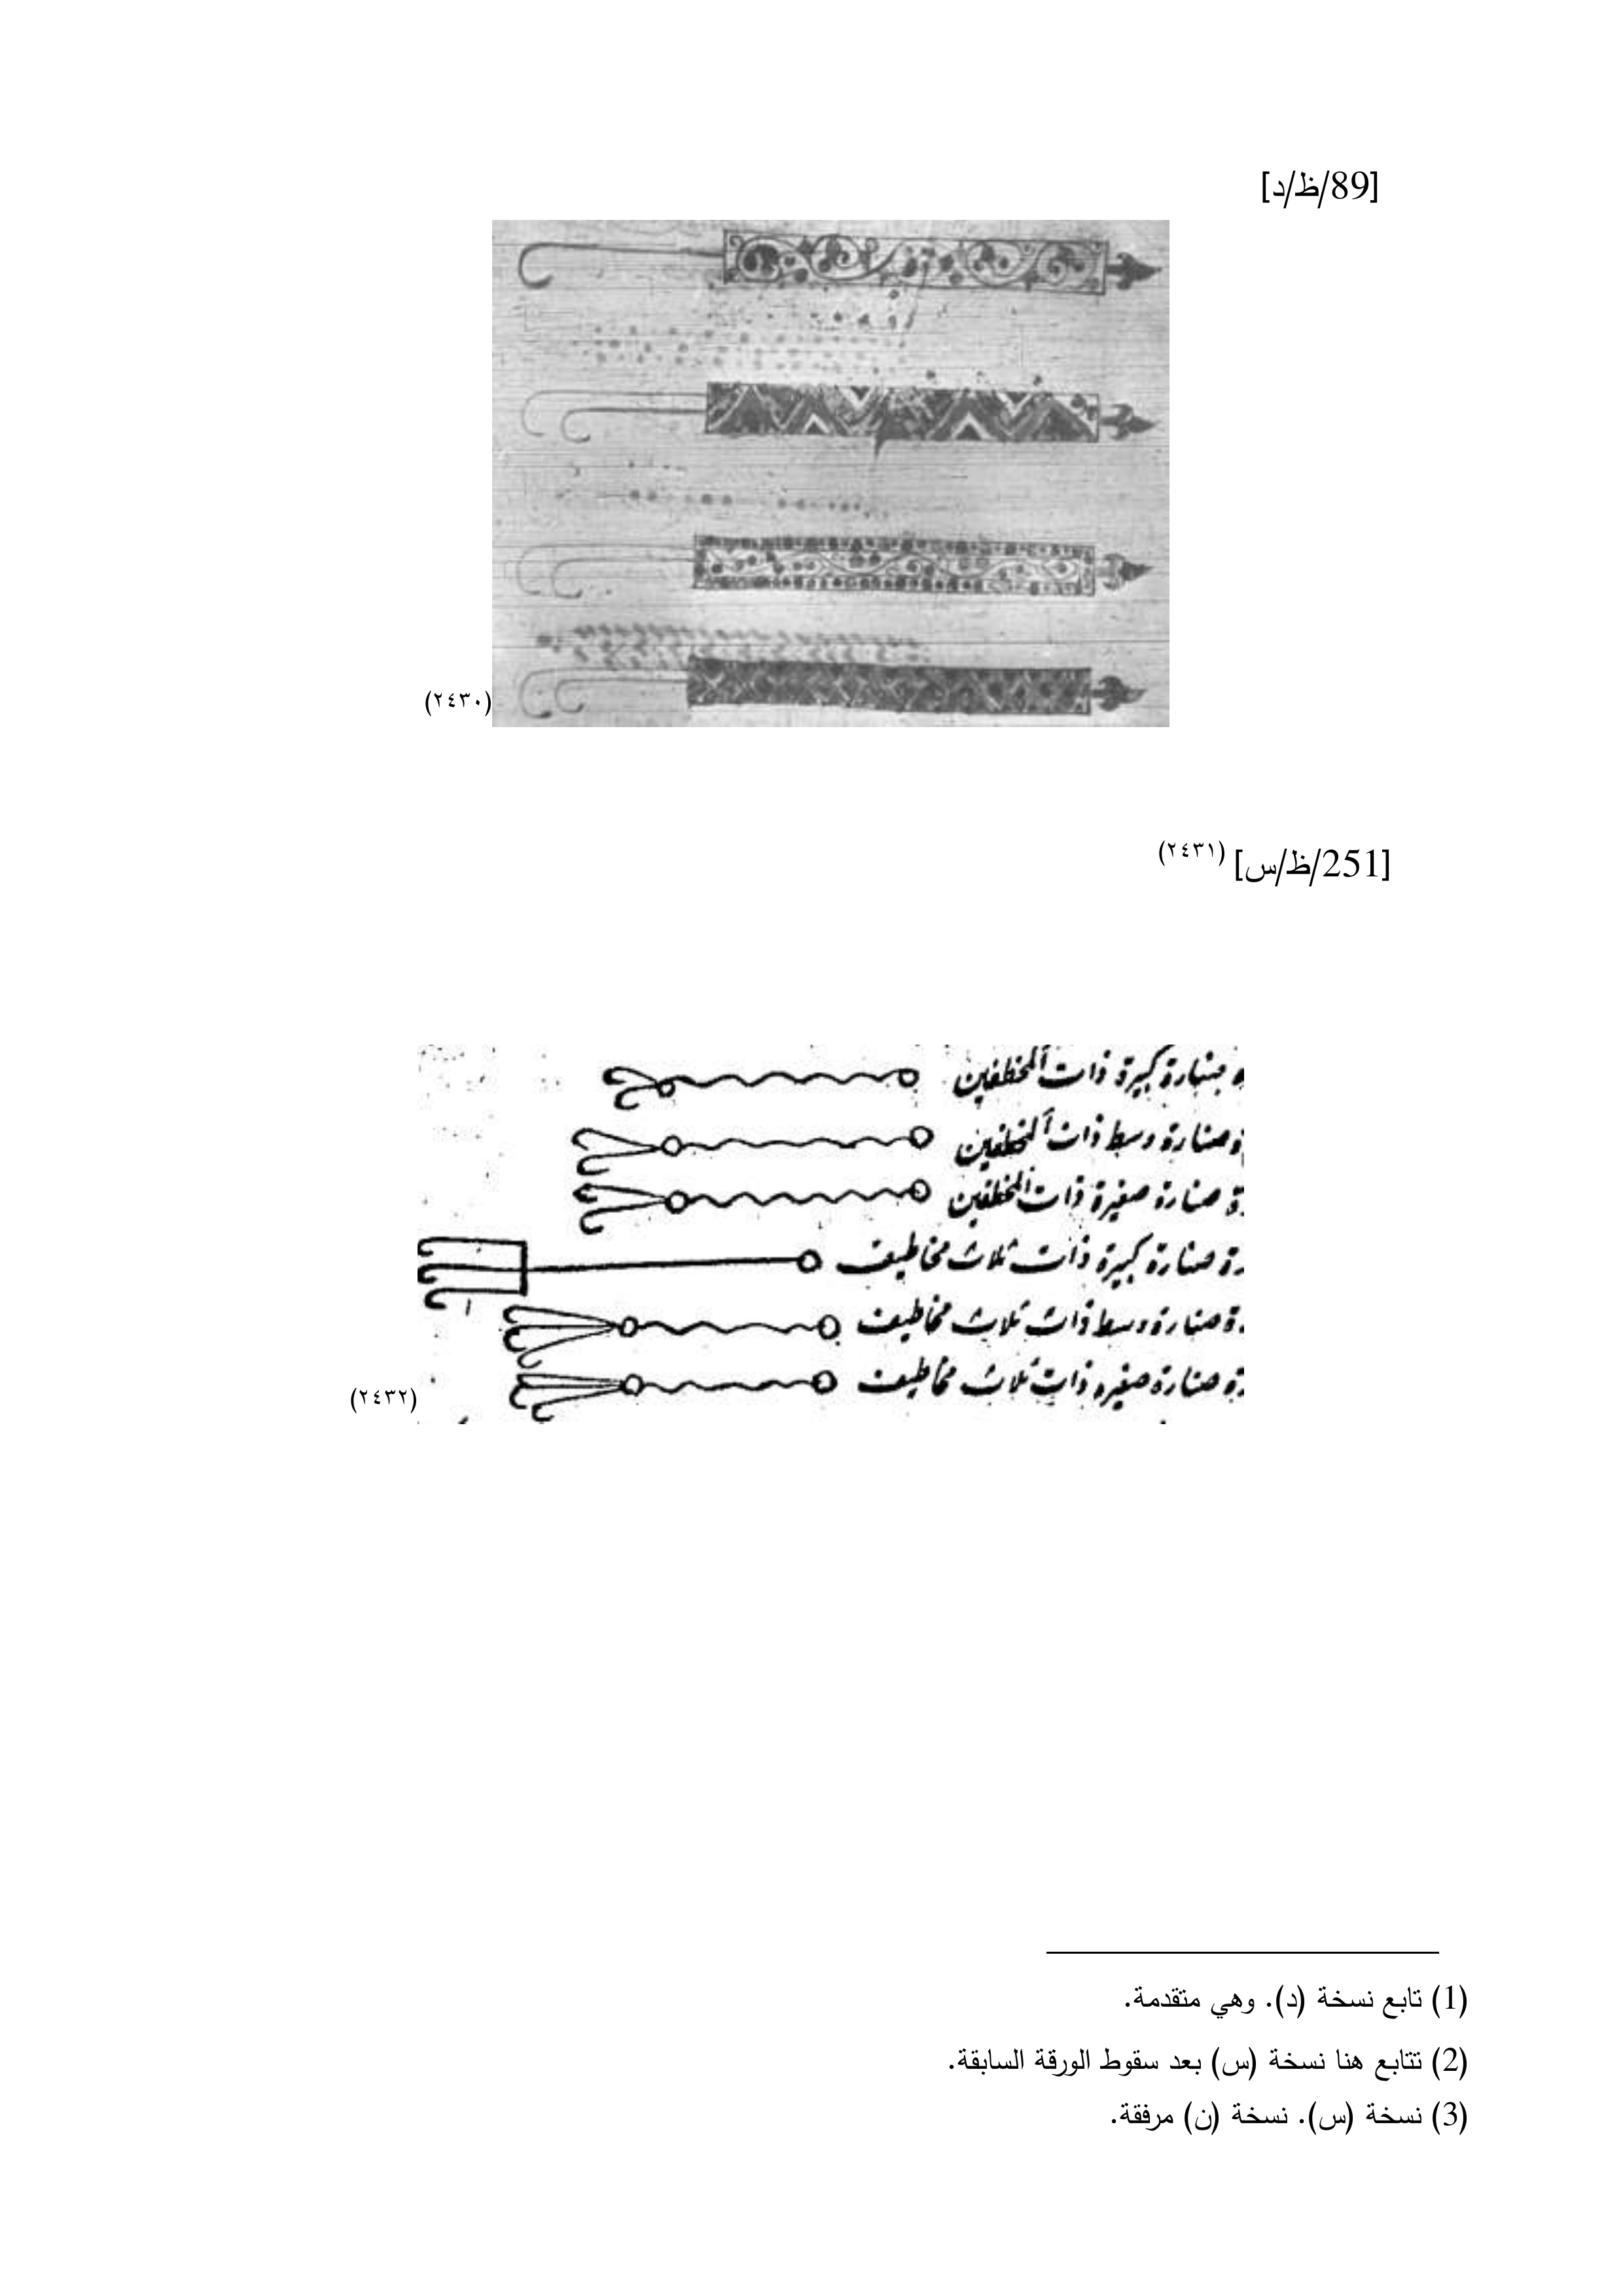 [89/ظ/د]
(٢٤٣٠)
[251/ظ/س] (٢٤٣١)
صنارة كبيرة ذات المخطفين
صنارة وسط ذات المخطفين
صنارة صغيرة ذات المخطفين
صنارة كبيرة ذات ثلاث مخاطيف
صنارة وسط ذات ثلاث مخاطيف
صنارة صغيره ذات ثلاث مخاطيف
(٢٤٣٢)
(1) تابع نسخة (د). وهي متقدمة.
(2) تتابع هنا نسخة (س) بعد سقوط الورقة السابقة.
(3) نسخة (س). نسخة (ن) مرفقة.